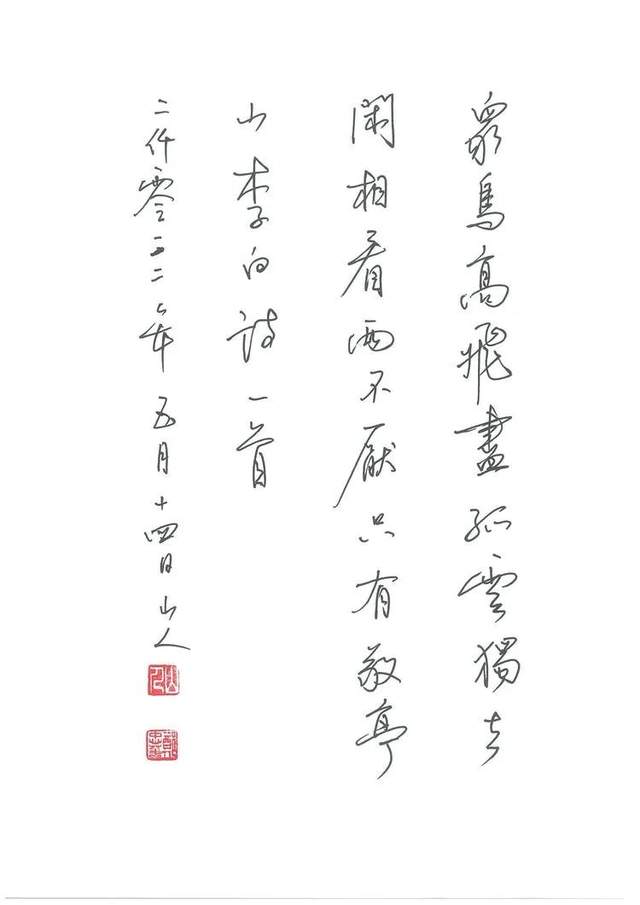 眾鳥高飛盡孤雲獨去
閑相看兩不厭只有敬亭
山李白詩一首
二仟零二二年五月十四日山人
山人